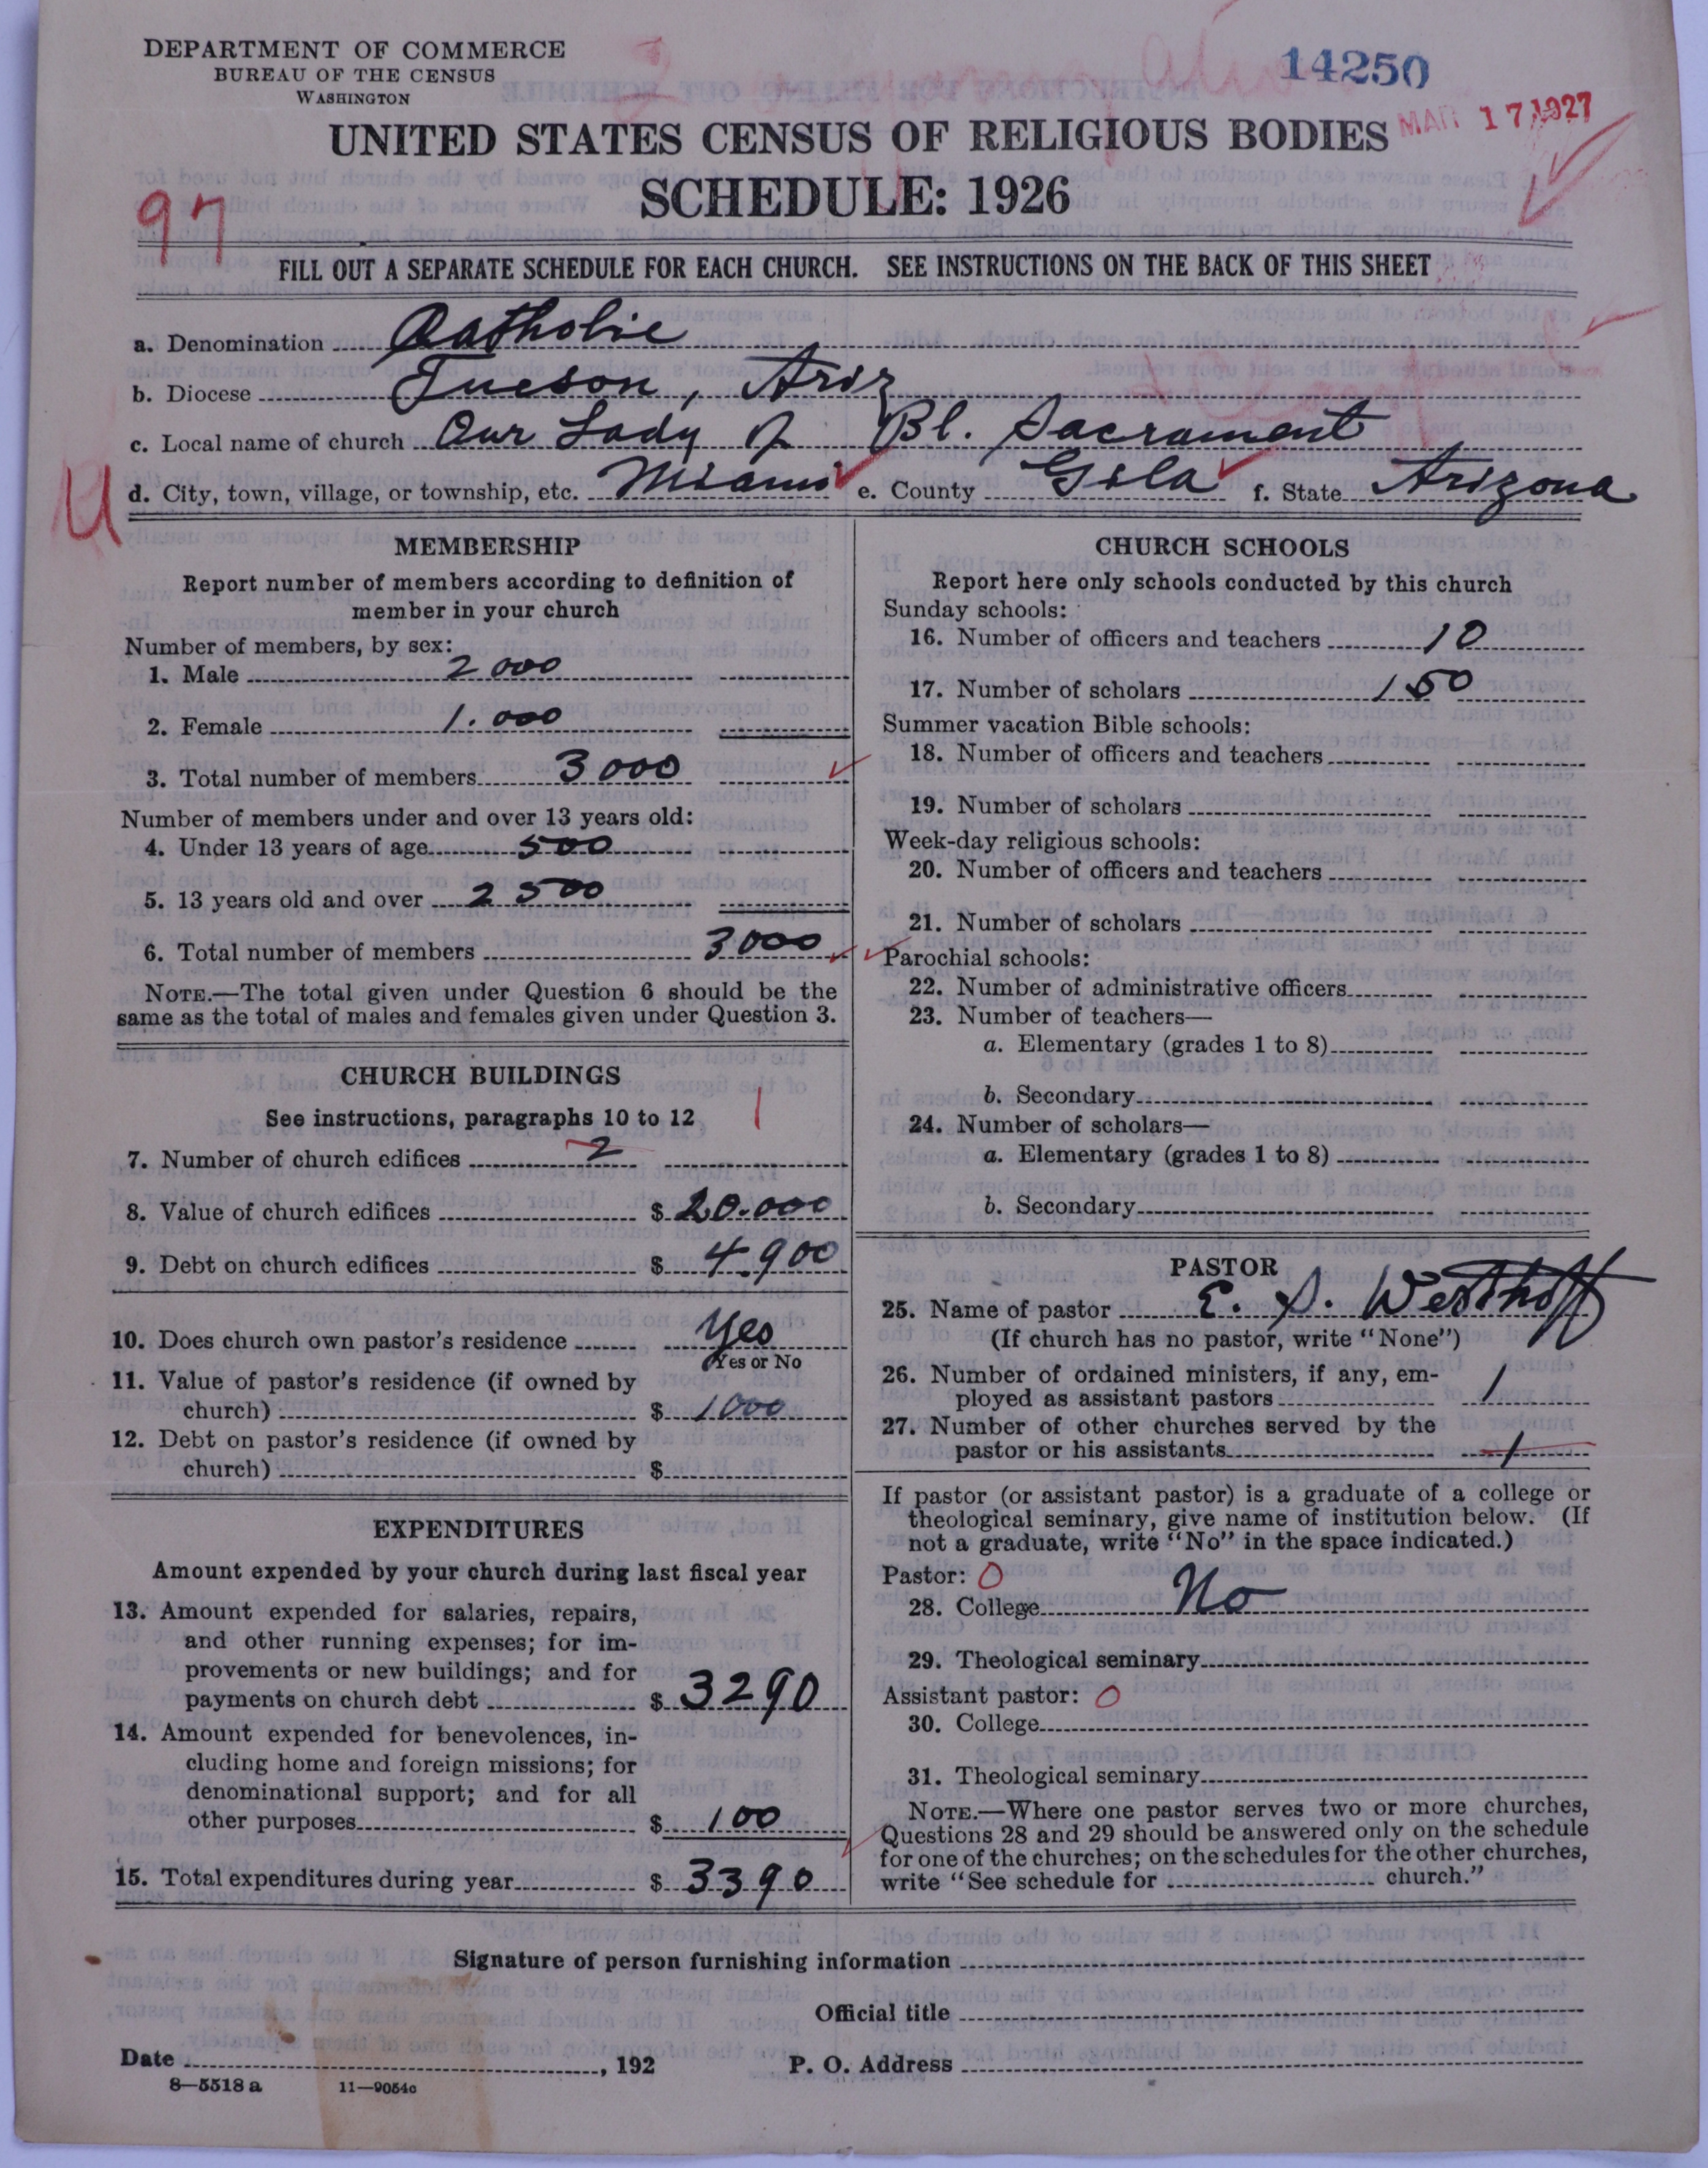 DEPARTMENT OF COMMERCE
BUREAU OF THE CENSUS
WASHINGTON
14250
MAR 17 1927
UNITED STATES CENSUS OF RELIGIOUS BODIES
SCHEDULE: 1926
97
FILL OUT A SEPARATE SCHEDULE FOR EACH CHURCH. SEE INSTRUCTIONS ON THE BACK OF THIS SHEET
a. Denomination Catholic
b. Diocese Tucson, Ariz
c. Local name of church Our Lady of Bl. Sacrament
U
d. City, town, village, or township, etc. Miami e. County Gila f. State Arizona
MEMBERSHIP
Report number of members according to definition of
member in your church
Number of members, by sex:
1. Male 2000
2. Female 1.000
3. Total number of members 3000
Number of members under and over 13 years old:
4. Under 13 years of age 500
5. 13 years old and over 2500
6. Total number of members 3000
NOTE.—The total given under Question 6 should be the
same as the total of males and females given under Question 3.
CHURCH BUILDINGS
See instructions, paragraphs 10 to 12
1
7. Number of church edifices 2
8. Value of church edifices $ 20.000
9. Debt on church edifices $ 4.900
10. Does church own pastor's residence Yes
Yes or No
11. Value of pastor's residence (if owned by
church) $ 1000
12. Debt on pastor's residence (if owned by
church) $
EXPENDITURES
Amount expended by your church during last fiscal year
13. Amount expended for salaries, repairs,
and other running expenses; for im-
provements or new buildings; and for
payments on church debt $ 3290
14. Amount expended for benevolences, in-
cluding home and foreign missions; for
denominational support; and for all
other purposes $ 100
15. Total expenditures during year $ 3390
CHURCH SCHOOLS
Report here only schools conducted by this church
Sunday schools:
16. Number of officers and teachers 10
17. Number of scholars 150
Summer vacation Bible schools:
18. Number of officers and teachers
19. Number of scholars
Week-day religious schools:
20. Number of officers and teachers
21. Number of scholars
Parochial schools:
22. Number of administrative officers
23. Number of teachers—
a. Elementary (grades 1 to 8)
b. Secondary
24. Number of scholars—
a. Elementary (grades 1 to 8)
b. Secondary
PASTOR
25. Name of pastor E. S. Westhoff
(If church has no pastor, write "None")
26. Number of ordained ministers, if any, em-
ployed as assistant pastors 1
27. Number of other churches served by the
pastor or his assistants 1
If pastor (or assistant pastor) is a graduate of a college or
theological seminary, give name of institution below. (If
not a graduate, write "No" in the space indicated.)
Pastor: 0
28. College No
29. Theological seminary
Assistant pastor: 0
30. College
31. Theological seminary
NOTE.—Where one pastor serves two or more churches,
Questions 28 and 29 should be answered only on the schedule
for one of the churches; on the schedules for the other churches,
write "See schedule for church."
Signature of person furnishing information
Official title
Date , 192 P. O. Address
8—5518 a 11—9054c